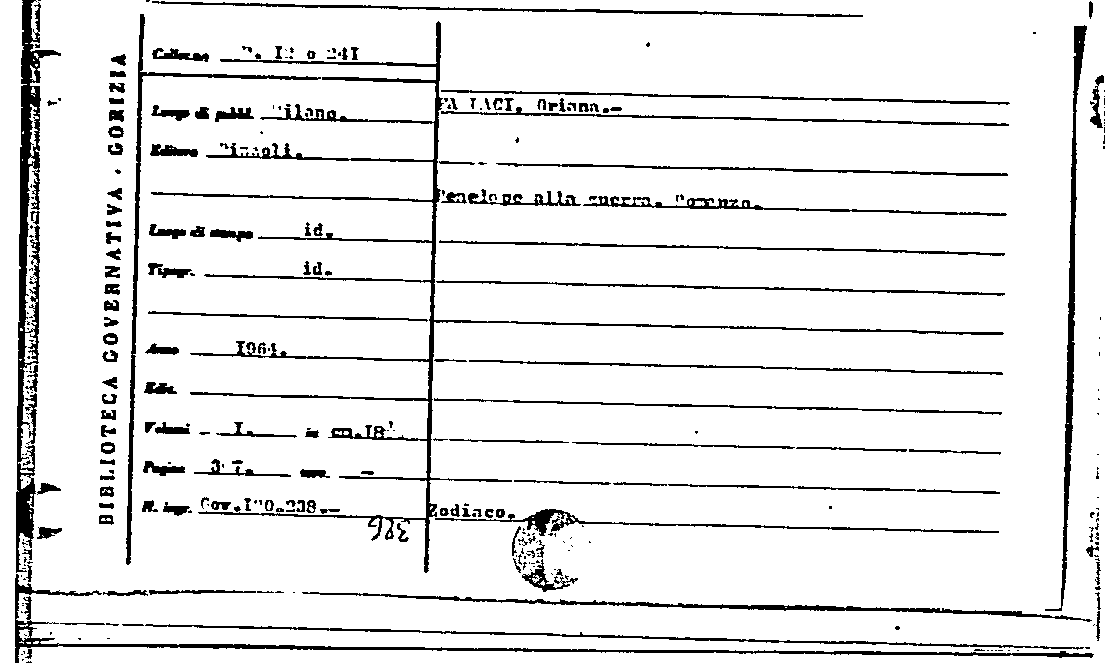 BIBLIOTECA GOVERNATIVA . GORIZIA
Collocaz.
Luogo di pubbl. Milano.
Editore Rizzoli.
Luogo di stampa id.
Tipogr. id.
Anno 1964.
Ediz.
Volumi I. in cm.18°.
Pagine
N. ingr.
FALLACI, Oriana.-
Penelope alla guerra. Romanzo.
Zodiaco.